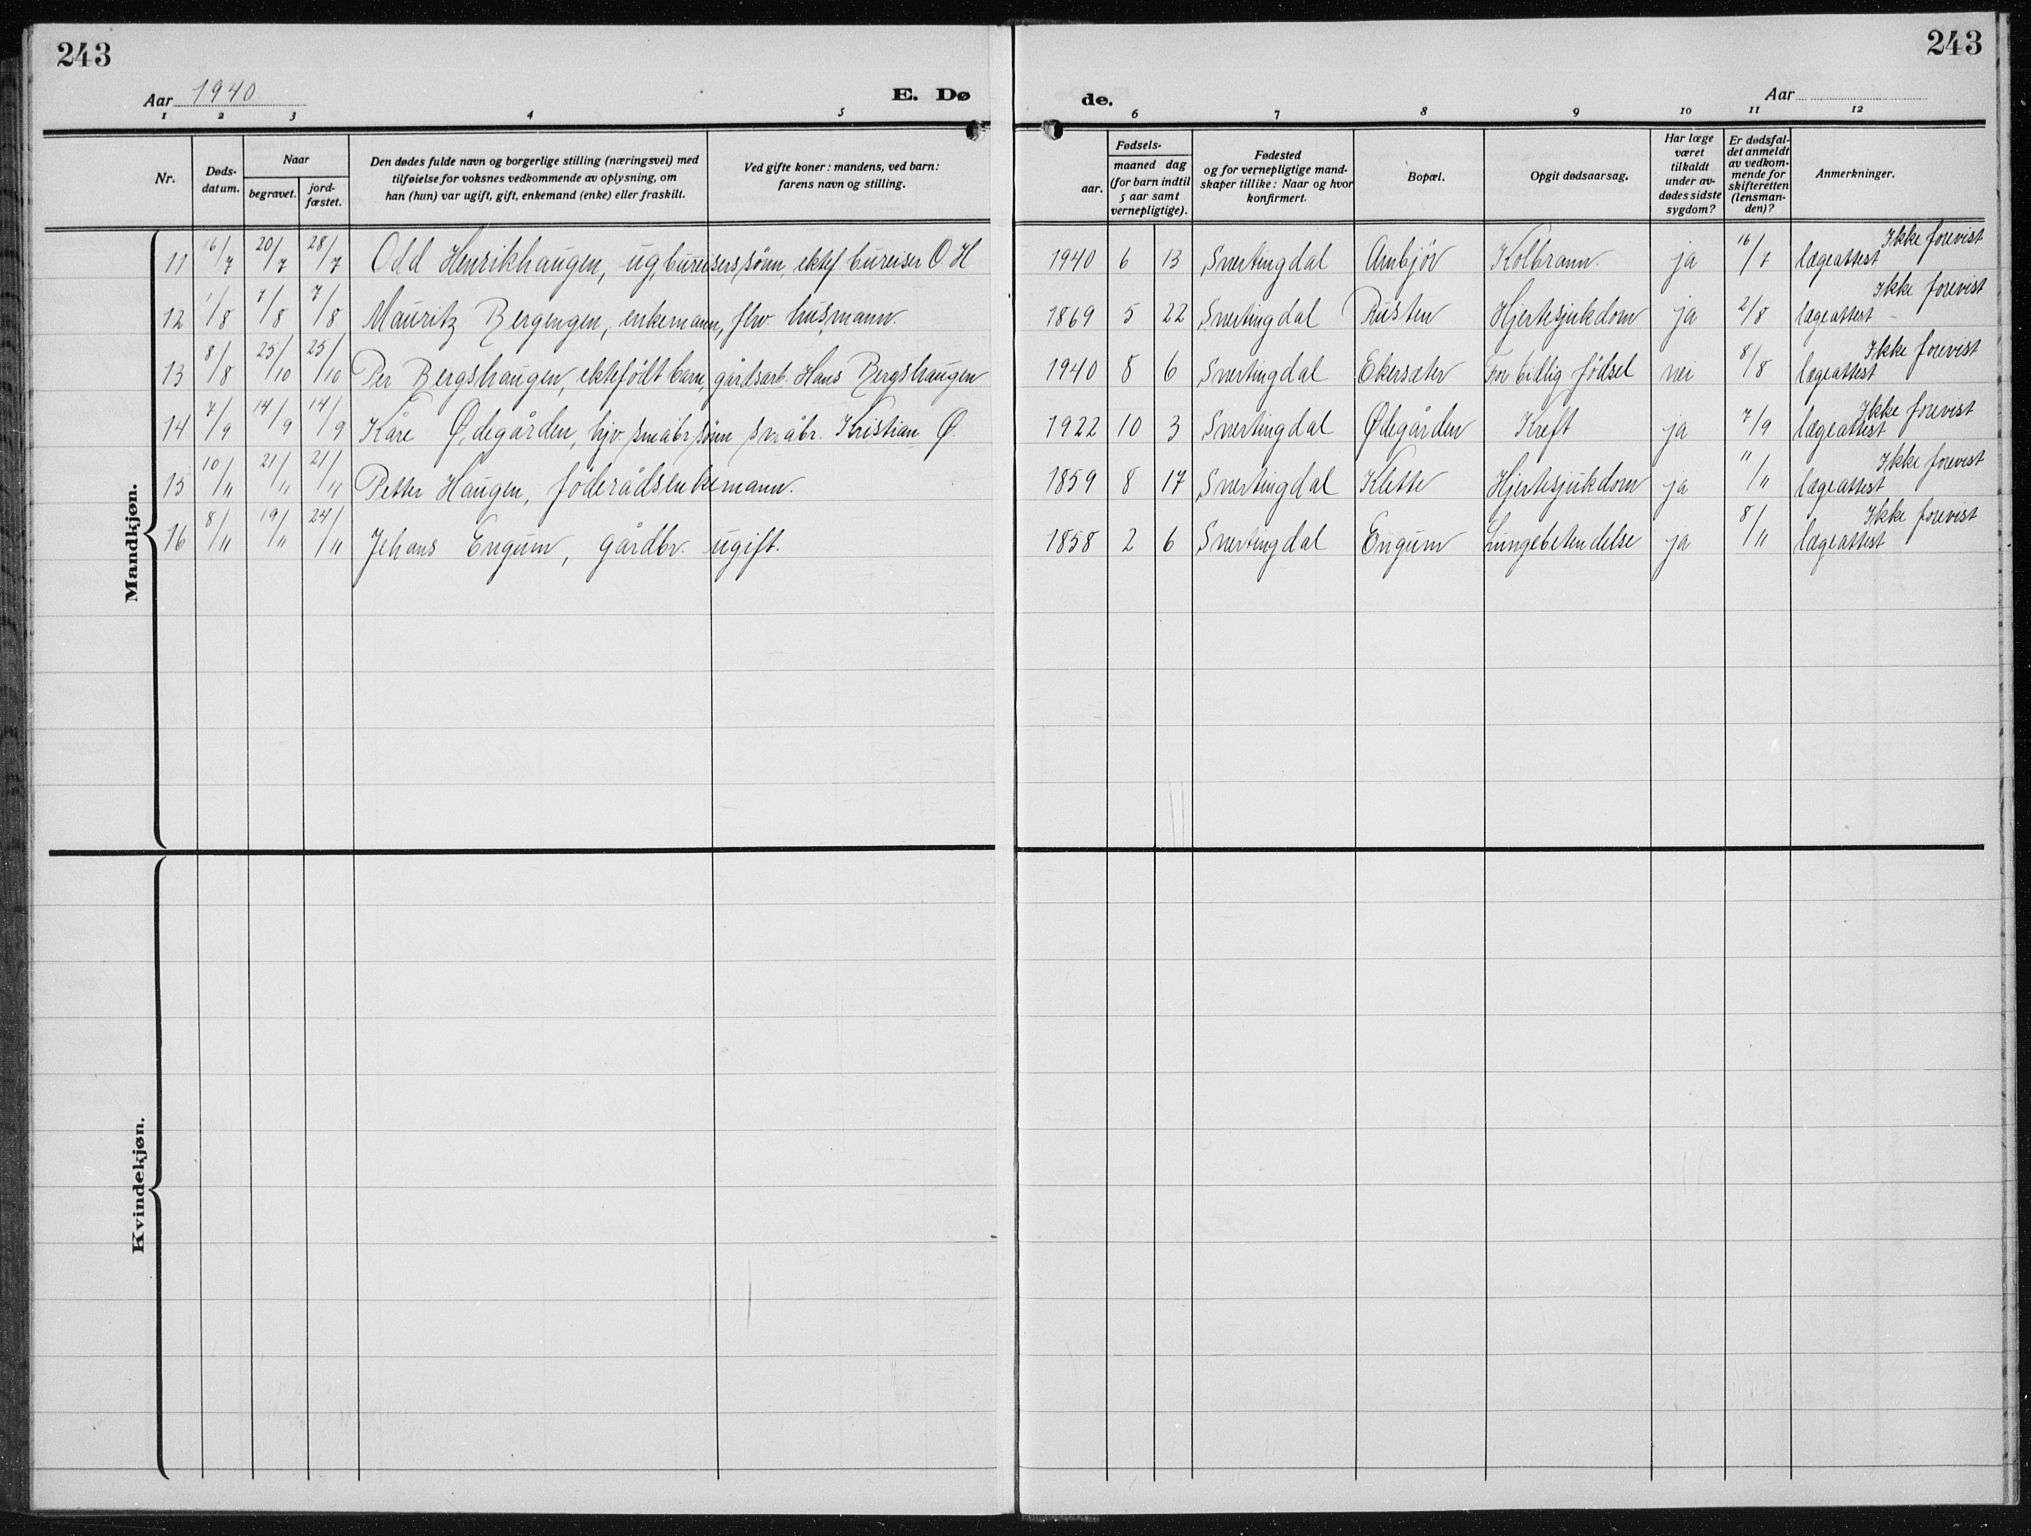 243
243
Aar 1940
E. Dø
de.
Aar
1 2 3 4 5 6 7 8 9 10 11 12
Nr.
Døds-
datum.
Naar
begravet.
jord-
fæstet.
Den dødes fulde navn og borgerlige stilling (næringsvei) med
tilføielse for voksnes vedkommende av oplysning, om
han (hun) var ugift, gift, enkemand (enke) eller fraskilt.
Ved gifte koner: mandens, ved barn:
farens navn og stilling.
Fødsels-
aar.
maaned dag
(for barn indtil
5 aar samt
vernepligtige).
Fødested
og for vernepligtige mand-
skaper tillike: Naar og hvor
konfirmert.
Bopæl.
Opgit dødsaarsag.
Har læge
været
tilkaldt
under av-
dødes sidste
sygdom?
Er dødsfal-
det anmeldt
av vedkom-
mende for
skifteretten
(lensman-
den)?
Anmerkninger.
Mandkjøn.
11 16/7 20/7 28/7 Odd Henrikhaugen, ug. bureisers sønn, ektef bureiser O H 1940 6 13 Snertingdal Ambjør Kolbrann ja 16/7 Ikke forevist lægeattest
12 1/8 7/8 7/8 Mauritz Bergengen, enkemann, flv. husmann. 1869 5 22 Snertingdal Rusten Hjertesjukdom ja 2/8 Ikke forevist lægeattest
13 8/8 25/10 25/10 Per Bergshaugen, ektefødt barn, gårdsarb. Hans Bergshaugen 1940 8 6 Snertingdal Ekersæter For tidlig fødsel nei 8/8 Ikke forevist lægeattest
14 7/9 14/9 14/9 Kåre Ødegården, hjv. småbr sønn småbr. Kristian Ø. 1922 10 3 Snertingdal Ødegården Kreft ja 7/9 Ikke forevist lægeattest
15 10/11 21/11 21/11 Petter Haugen, føderådsenkemann. 1859 8 17 Snertingdal Klette Hjertesjukdom ja 11/11 Ikke forevist lægeattest
16 8/11 19/11 24/11 Johans Engum, gårdbr. ugift. 1858 2 6 Snertingdal Engum Lungebetendelse ja 8/11 Ikke forevist lægeattest
Kvindekjøn.